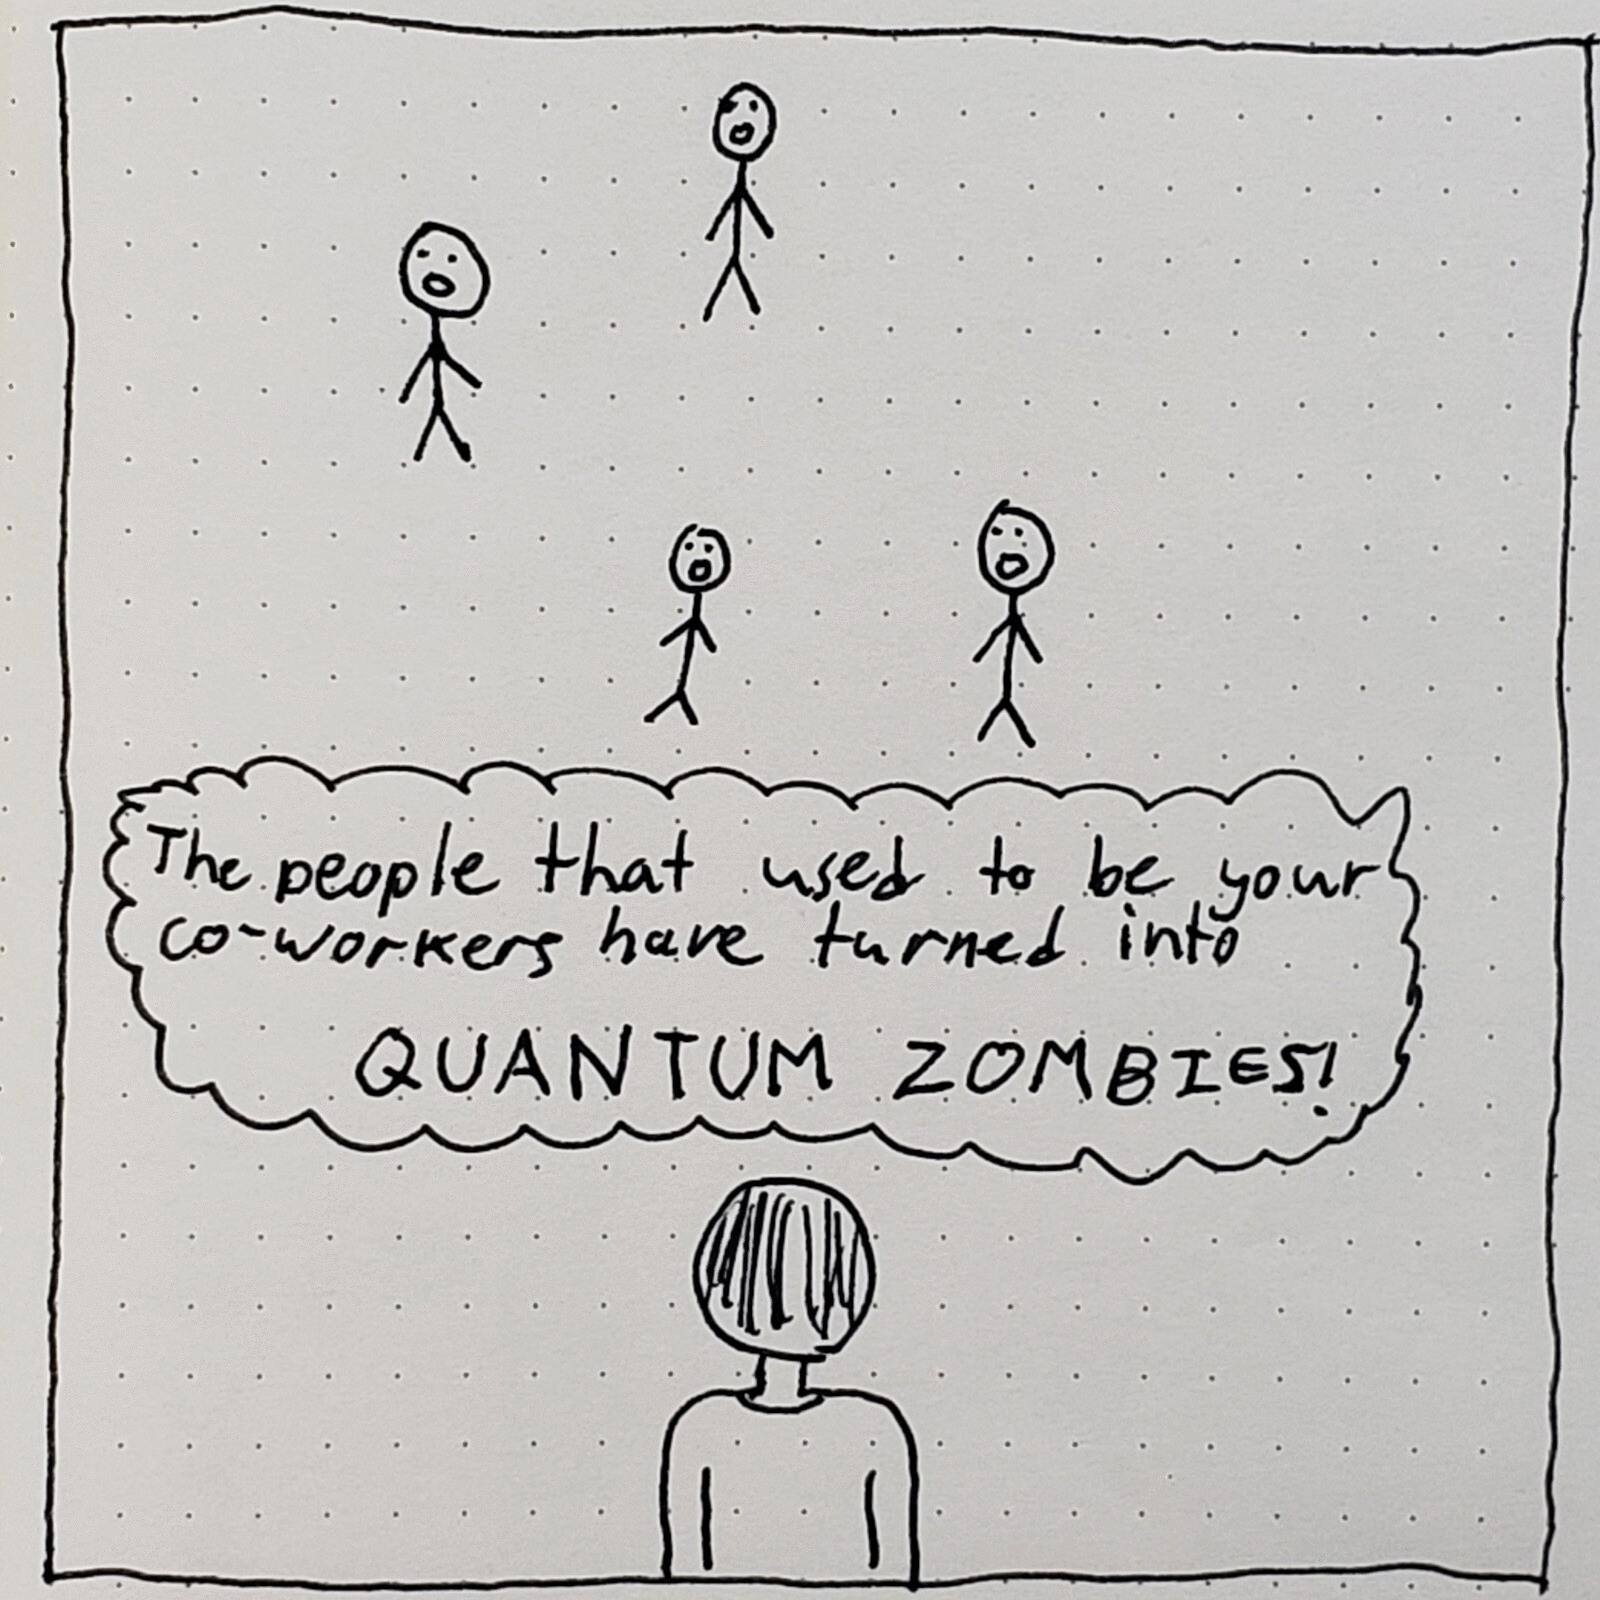 The people that used to be your
co-workers have turned into
QUANTUM ZOMBIES!